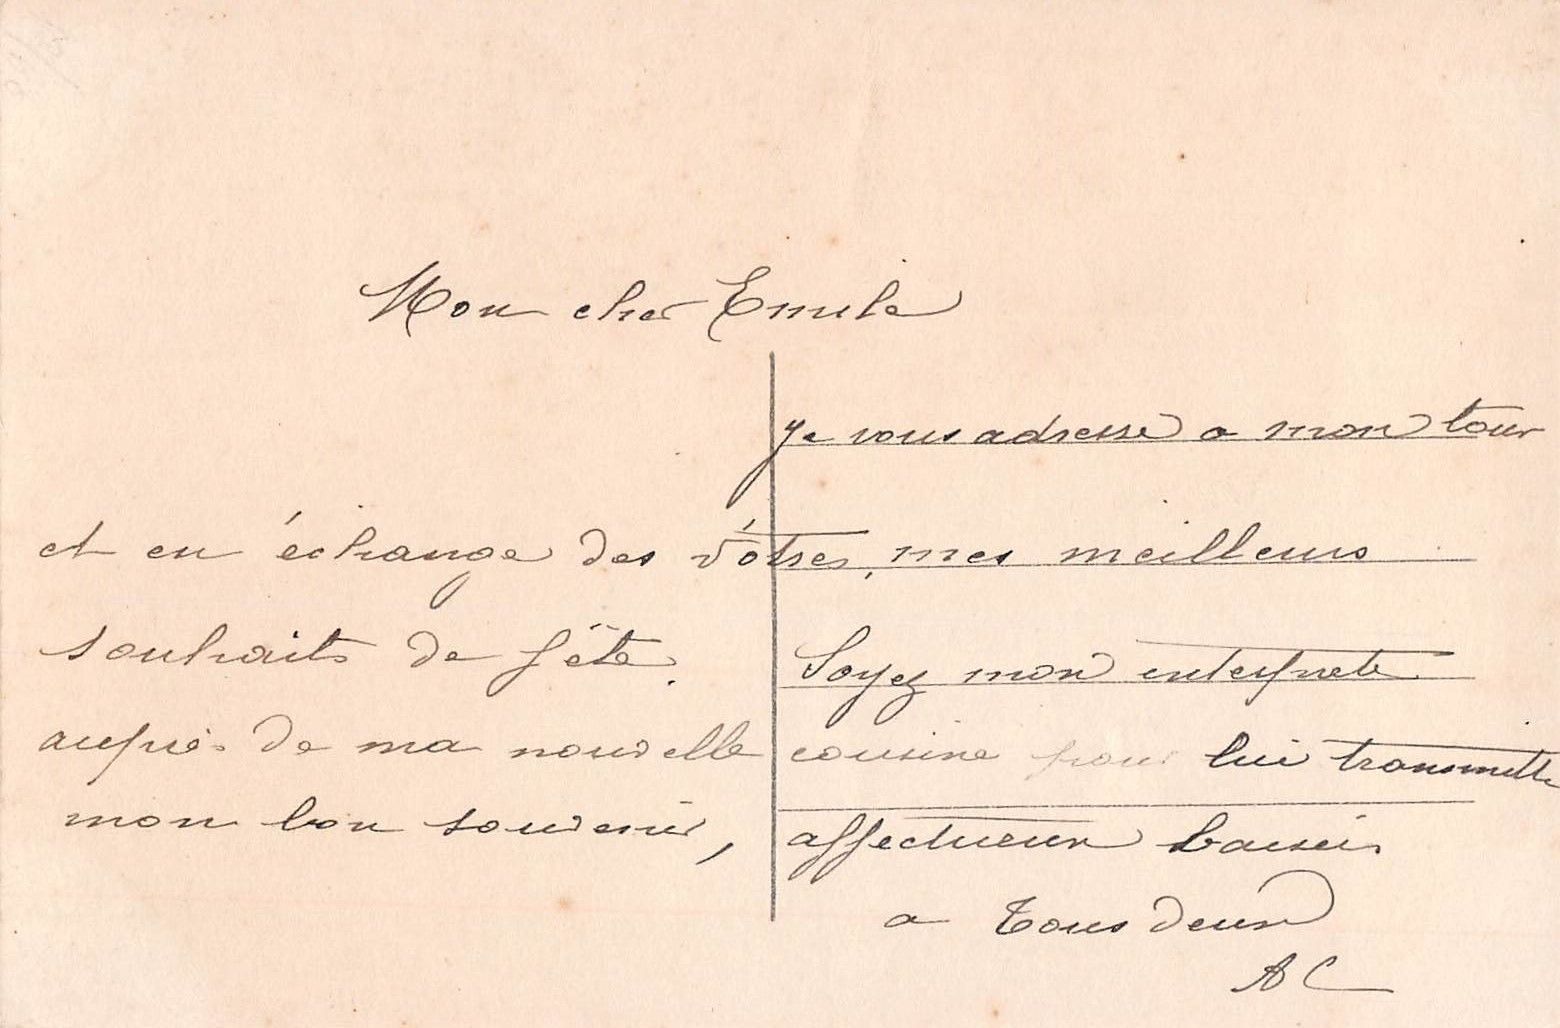 Mon cher Emile
je vous adresse a mon tour
et en échange des vôtres, mes meilleurs
souhaits de fête. Soyez mon interprete
auprès de ma nouvelle cousine pour lui transmettre
mon bon souvenir, affectueux baisers
a tous deux
AC